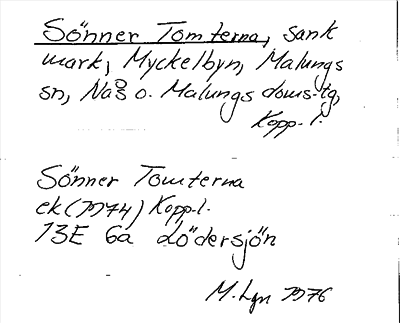 Sönner Tomterna, sank
mark, Myckelbyn, Malungs
sn, Nås o. Malungs doms.tg,
Kopp. l.
Sönner Tomterna
ek (1974) Kopp. l.
13E 6a Lödersjön
M. Lgn 1976